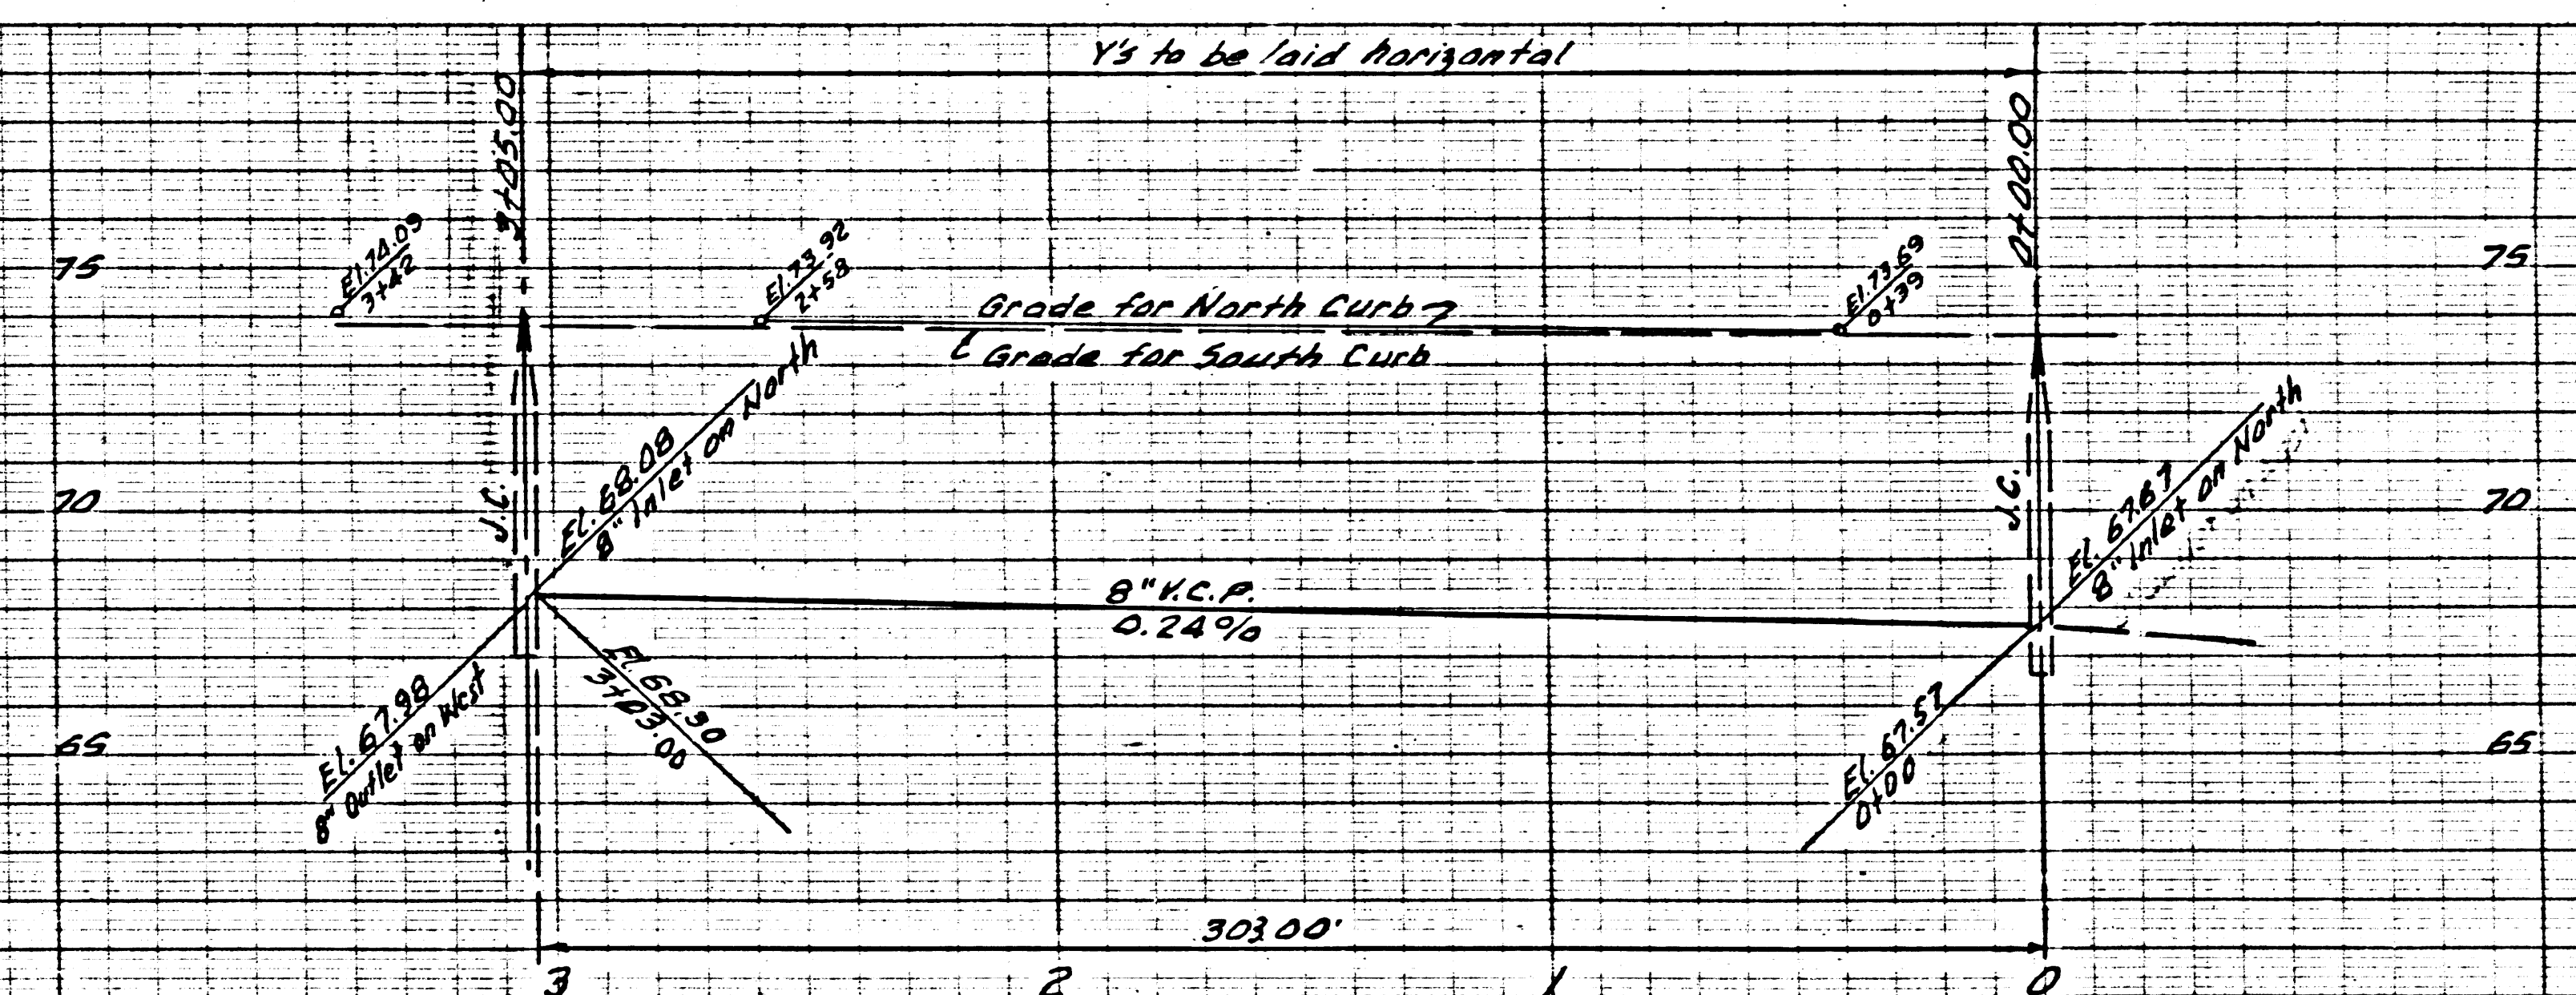 Y's to be laid horizontal
3+05.00
0+00.00
El.74.09
3+42
El.73.92
2+58
El.73.69
0+39
75
75
Grade for North Curb
Grade for South Curb
J.C.
El. 68.08
8" Inlet on North
J.C.
El. 67.67
8" Inlet on North
70
70
8" V.C.P.
0.24%
El. 67.98
8" Outlet on West
El. 68.30
3+03.00
El. 67.57
0+00
65
65
303.00'
3
2
1
0